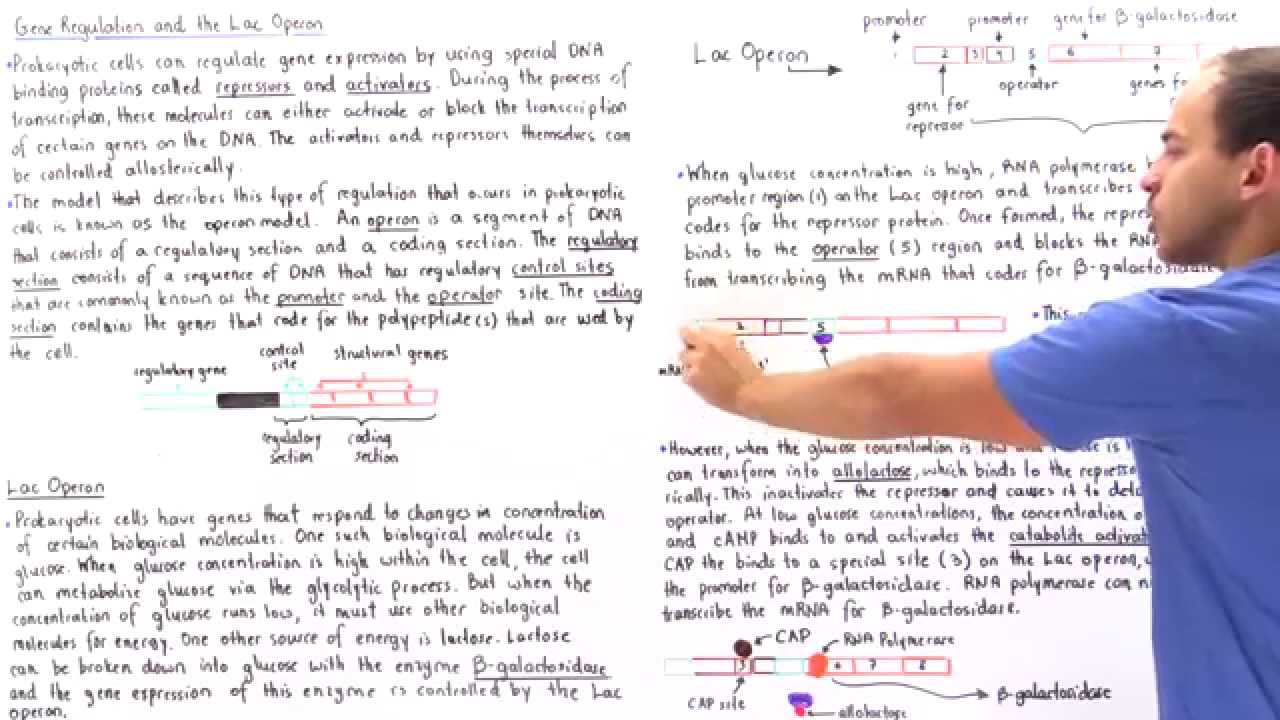 Gene Regulation and the Lac Operon
•Prokaryotic cells can regulate gene expression by using special DNA
binding proteins called repressors and activators. During the process of
transcription, these molecules can either activate or block the transcription
of certain genes on the DNA. The activators and repressors themselves can
be controlled allosterically.
•The model that describes this type of regulation that occurs in prokaryotic
cells is known as the operon model. An operon is a segment of DNA
that consists of a regulatory section and a coding section. The regulatory
section consists of a sequence of DNA that has regulatory control sites
that are commonly known as the promoter and the operator site. The coding
section contains the genes that code for the polypeptide(s) that are used by
the cell.
regulatory gene
control
site
structural genes
regulatory
section
coding
section
Lac Operon
•Prokaryotic cells have genes that respond to changes in concentration
of certain biological molecules. One such biological molecule is
glucose. When glucose concentration is high within the cell, the cell
can metabolize glucose via the glycolytic process. But when the
concentration of glucose runs low, it must use other biological
molecules for energy. One other source of energy is lactose. Lactose
can be broken down into glucose with the enzyme β-galactosidase
and the gene expression of this enzyme is controlled by the Lac
operon.
promoter promoter gene for β-galactosidase
Lac Operon
1 2 3 4 5 6 7
gene for
repressor
operator
genes for
•When glucose concentration is high, RNA polymerase
promoter region (1) on the Lac operon and transcribes
codes for the repressor protein. Once formed, the
binds to the operator (5) region and blocks the RNA
from transcribing the mRNA that codes for β-galactosidase
2 5
•This
•However, when the glucose concentration is low and is
can transform into allolactose, which binds to the
This inactivates the repressor and causes it to
operator. At low glucose concentrations, the concentration
and cAMP binds to and activates the catabolite
CAP the binds to a special site (3) on the Lac operon,
the promoter for β-galactosidase. RNA polymerase can
transcribe the mRNA for β-galactosidase.
CAP
RNA Polymerase
3 6 7 8
CAP site
allolactose
β-galactosidase